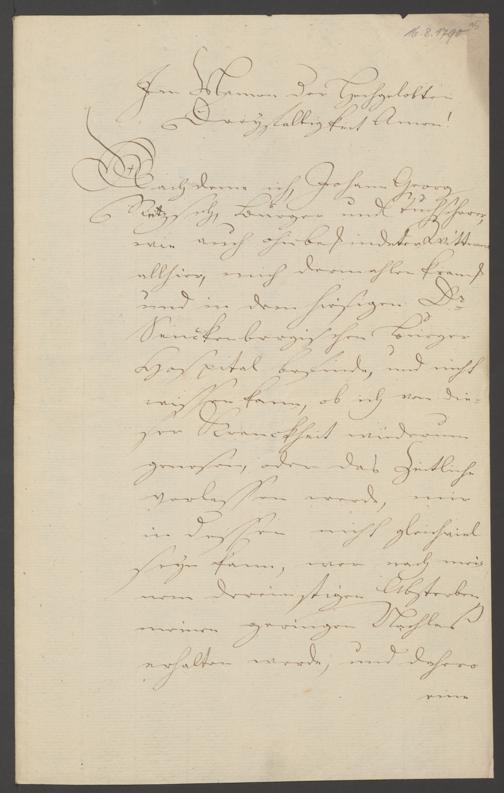 16.8.1790
Im Namen der Hochgelobten
Dreyfaltigkeit Amen!
Nachdeme ich, Johann Georg
Burger und Tuchscherer,
wie auch ohnbe Wittwer
allhier, mich dermahlen kranck
und in dem hiesigen Dr
Senckenbergischen Burger
Hospital befinde, und nicht
wissen kann, ob ich von die-
ser Kranckheit wiederum
genesen, oder das Zeitliche
verlassen werde, mir
in dessen nicht gleichviel
seyn kann, wer nach mei-
nem dereinstigen Absterben
meinen geringen Nachlaß
erhalten werde, und dahero
eine